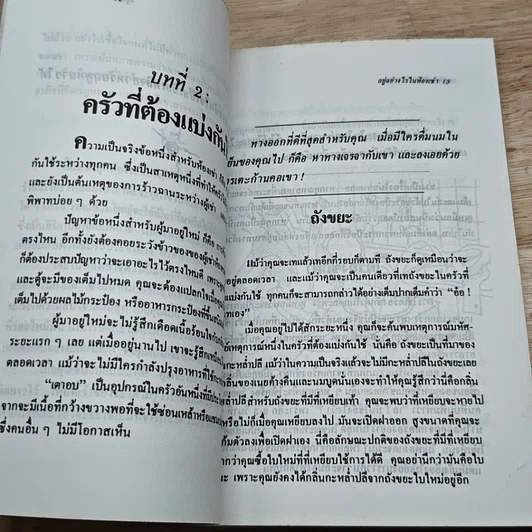 บทที่ 2:
ครัวที่ต้องแบ่งกัน
ความเป็นจริงข้อหนึ่งสำหรับห้องเช่า
กันใช้ระหว่างทุกคน ซึ่งเป็นสาเหตุหนึ่งที่ทำให้
และยังเป็นต้นเหตุของการร้าวฉานระหว่างผู้เช่า
พิพาทบ่อย ๆ ด้วย
ปัญหาข้อหนึ่งสำหรับผู้มาอยู่ใหม่ ก็คือ
ตรงไหน อีกทั้งยังต้องคอยระวังข้าวของของผู้เช่า
ก็ต้องประสบปัญหาว่าจะเอาอะไรไว้ตรงไหนดี เพราะ
และตู้จะมีของเต็มไปหมด คุณจะต้องแปลกใจเมื่อ
เต็มไปด้วยผลไม้กระป๋อง หรืออาหารกระป๋องที่ขึ้น
ผู้มาอยู่ใหม่จะไม่รู้สึกเดือดเนื้อร้อนใจกับ
ระยะแรก ๆ เลย แต่เมื่ออยู่นานไป เขาจะรู้สึก
ตลอดเวลา แม้ว่าจะไม่มีใครกำลังปรุงอาหารที่
“เตาอบ” เป็นอุปกรณ์ในครัวอันหนึ่งที่
จากจะมีเนื้อที่กว้างขวางพอที่จะใช้ซ่อนเหล้าหรือ
ซึ่งคนอื่น ๆ ไม่มีโอกาสเห็น
อยู่อย่างไรในห้องเช่า 13
ทางออกที่ดีที่สุดสำหรับคุณ เมื่อมีใครดื่มนมใน
เย็นของคุณไป ก็คือ หาทางเจรจากับเขา และลงเอยด้วย
การเตะก้านคอเขา !
ถังขยะ
แม้ว่าคุณจะเทแล้วเทอีกที่รอบก็ตามที ถังขยะก็ดูเหมือนว่าจะ
อยู่ตลอดเวลา และแม้ว่าคุณจะเป็นคนเดียวที่เทถังขยะในครัวที่
แบ่งกันใช้ ทุกคนก็จะสามารถกล่าวได้อย่างเต็มปากเต็มคำว่า “อ้อ !
เทเอง”
เมื่อคุณอยู่ไปได้สักระยะหนึ่ง คุณก็จะค้นพบเหตุการณ์มหัศ-
เหตุการณ์หนึ่งในครัวที่ต้องแบ่งกันใช้ นั่นคือ ถังขยะเป็นที่มาของ
กะหล่ำปลี แม้ว่าในความเป็นจริงแล้วจะไม่มีกะหล่ำปลีในถังขยะเลย
กลิ่นของเนยค้างคืนและนมบูดนั่นเองจะทำให้คุณรู้สึกว่านี่คือกลิ่น
กะหล่ำปลี สำหรับถังขยะที่มีที่เหยียบเท้า คุณอาจจะเหยียบจะหายไป
หรือไม่ก็เมื่อคุณเหยียบลงไป มันจะเปิดฝาออก สูงขนาดที่คุณจะ
ก้มตัวลงเพื่อเปิดฝาเอง นี่คือลักษณะปกติของถังขยะที่มีที่เหยียบ
กว่าคุณซื้อใบใหม่ที่ที่เหยียบใช้การได้ดี คุณอย่านึกว่ามันคือใบ
เพราะคุณยังคงได้กลิ่นกะหล่ำปลีจากถังขยะใบใหม่อยู่อีก